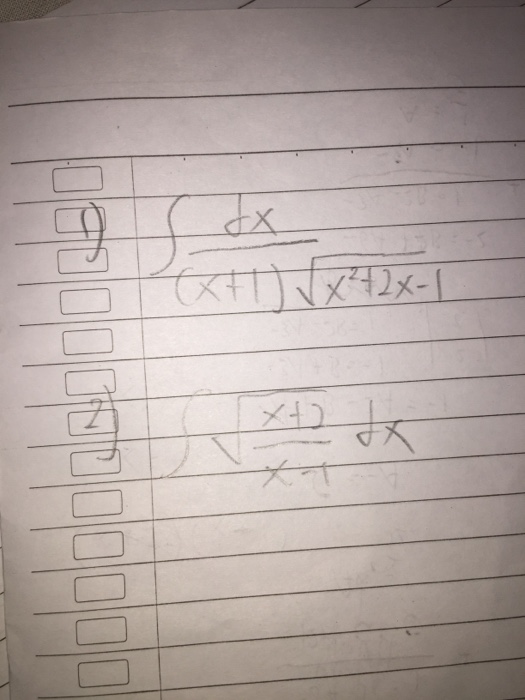 1) ∫ dx / (x+1)√(x²+2x-1)
2) ∫ √((x+2)/(x-1)) dx